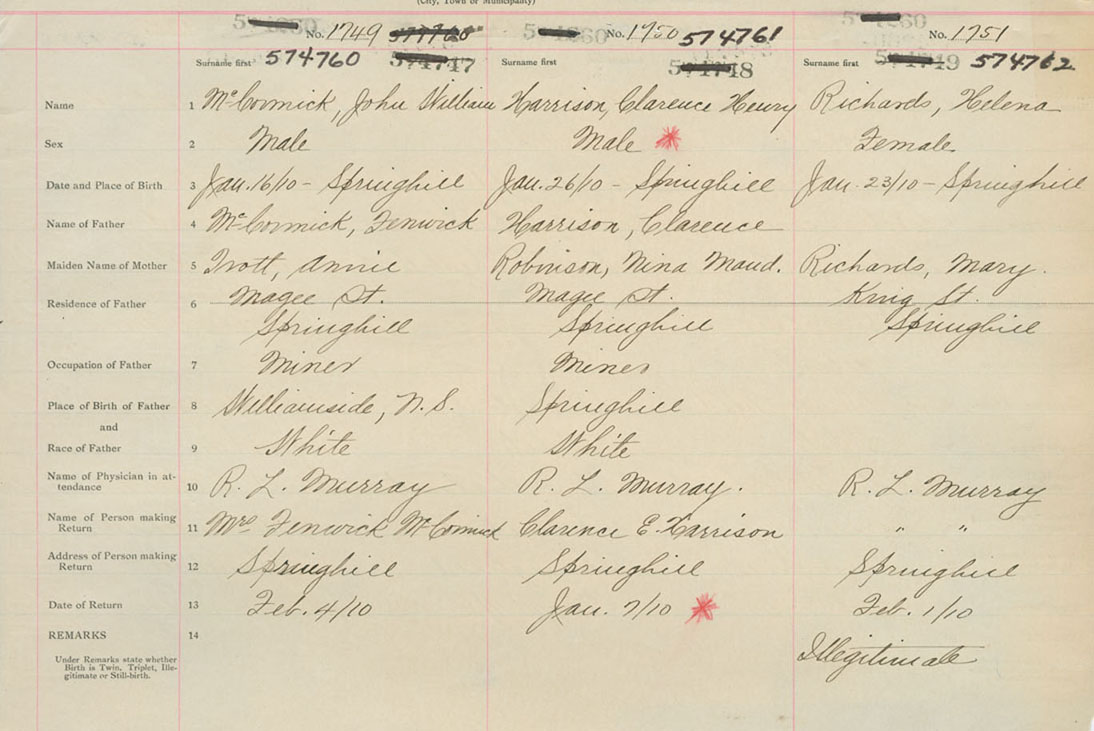 (City, Town or Municipality)
No. 1749 No. 1750 574761 No. 1751
Surname first 574760 Surname first Surname first 574762
Name 1 McCormick, John William Harrison, Clarence Henry Richards, Helena
Sex 2 Male Male Female
Date and Place of Birth 3 Jan. 16/10 - Springhill Jan. 26/10 - Springhill Jan. 23/10 - Springhill
Name of Father 4 McCormick, Fenwick Harrison, Clarence
Maiden Name of Mother 5 Trott, Annie Robinson, Nina Maud. Richards, Mary.
Residence of Father 6 Magee St. Magee St. King St.
Springhill Springhill Springhill
Occupation of Father 7 Miner Miner
Place of Birth of Father 8 Williamside, N.S. Springhill
and
Race of Father 9 White White
Name of Physician in at-
tendance 10 R. L. Murray R. L. Murray. R. L. Murray
Name of Person making
Return 11 Mrs Fenwick McCormick Clarence E. Harrison " "
Address of Person making
Return 12 Springhill Springhill Springhill
Date of Return 13 Feb. 4/10 Jan. 7/10 Feb. 1/10
REMARKS 14
Illegitimate
Under Remarks state whether
Birth is Twin, Triplet, Ille-
gitimate or Still-birth.